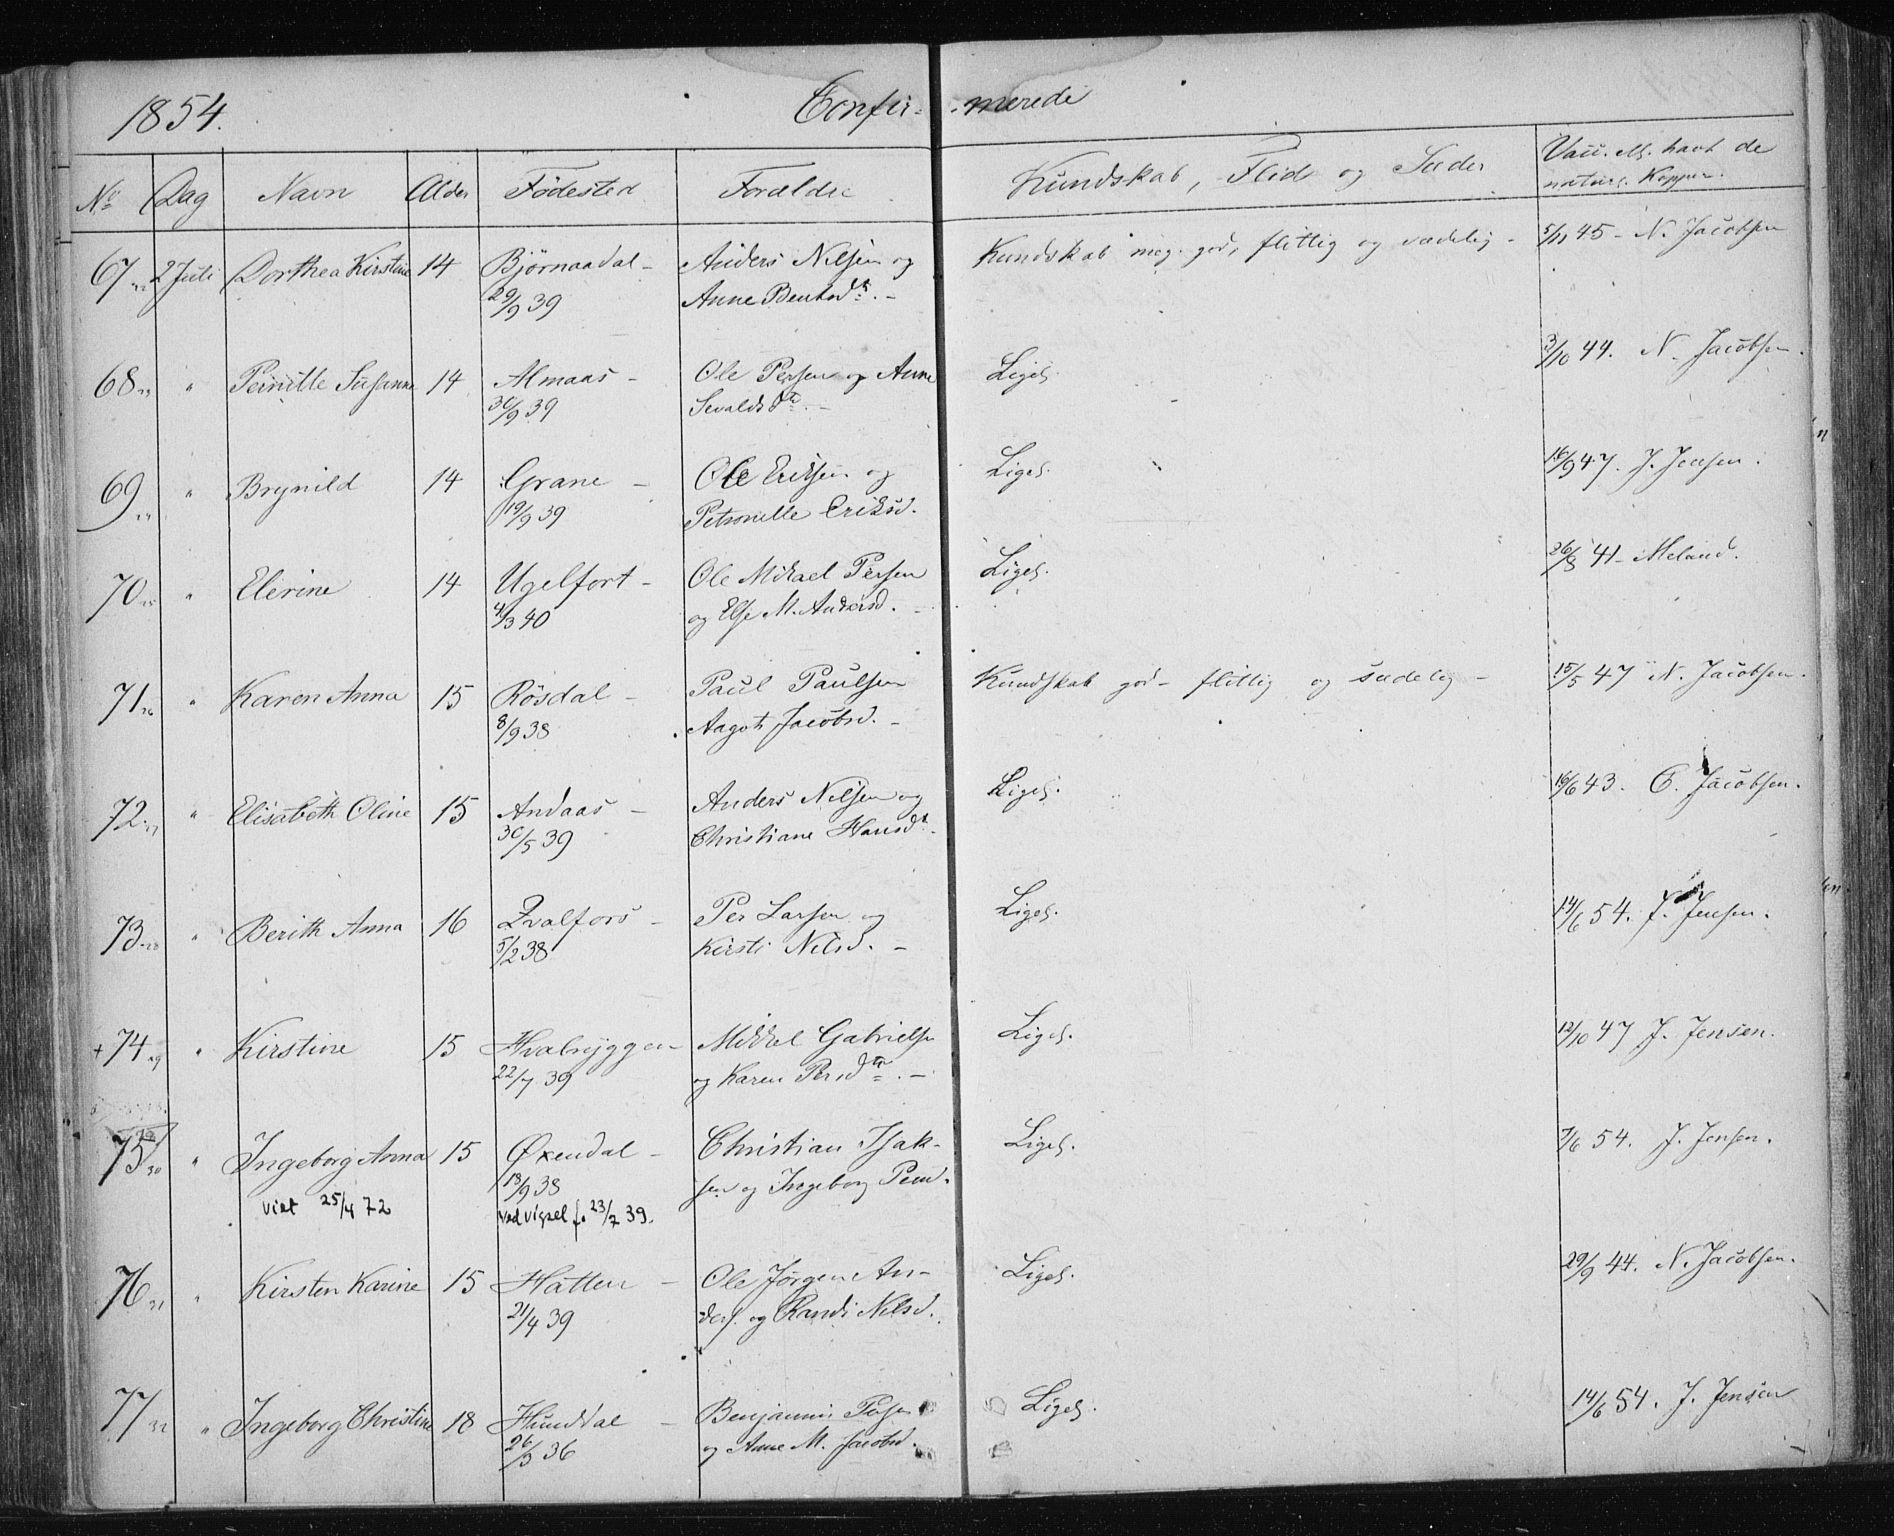 1854. Confir- -merede
No Dag Navn Alder Fødested Forældre Kundskab, Flid og Sæder Vacc. el. havt de
naturl. Kopper.
67 22 2 Juli Dorthea Kirstine 14 Bjørnaadal - Anders Nilsen og Kundskab meg. god, flittig og sædelig - 5/11 45 - N. Jacobsen
29/9 39 Anne Bentsdtr. -
68 23 " Pernille Susanna 14 Almaas - Ole Persen og Anne Ligel. 3/10 44. N. Jacobsen.
30/9 39 Sevaldsdtr. -
69 24 " Brynild 14 Grane - Ole Eriksen og Ligel. 16/9 47. J. Jensen.
19/9 39 Petronelle Eriksd.
70 25 " Elerine 14 Ugelfort - Ole Mikael Persen Ligel. 26/8 41 - Meland.
4/3 40 og Else M. Andersd. -
71 26 " Karen Anna 15 Røsdal - Paul Paulsen Kundskab god - flittig og sædelig - 15/5 47 N. Jacobsen.
8/9 38 Aagot Jacobsd. -
72 27 " Elisabeth Oline 15 Andaas - Anders Nilsen og Ligel. 16/6 43. C. Jacobsen.
30/5 39 Christiane Hansdt. -
73 28 " Berith Anna 16 Kvalfors - Per Larsen og Ligel. 14/6 54. J. Jensen.
5/2 38 Kirsti Nilsd. -
+ 74 29 " Kirstine 15 Hvalryggen - Mikkel Gabrielsen Ligel. 12/10 47 J. Jensen.
22/7 39 og Karen Persdtr. -
75 30 " Ingeborg Anna 15 Øxendal - Christian Isak- Ligel. 7/6 54. J. Jensen.
18/9 38 sen og Ingeborg Pers.
viet 25/4 72 ved vigsel f. 23/7 39.
76 31 " Kirsten Karine 15 Hatten - Ole Jørgen An- Ligel. 29/9 44. N. Jacobsen.
21/4 39 ders. og Randi Nilsd.
77 32 " Ingeborg Christine 18 Hunddal - Benjamin Persen Ligel. 14/6 54. J. Jensen
26/3 36 og Anne M. Jacobsd.